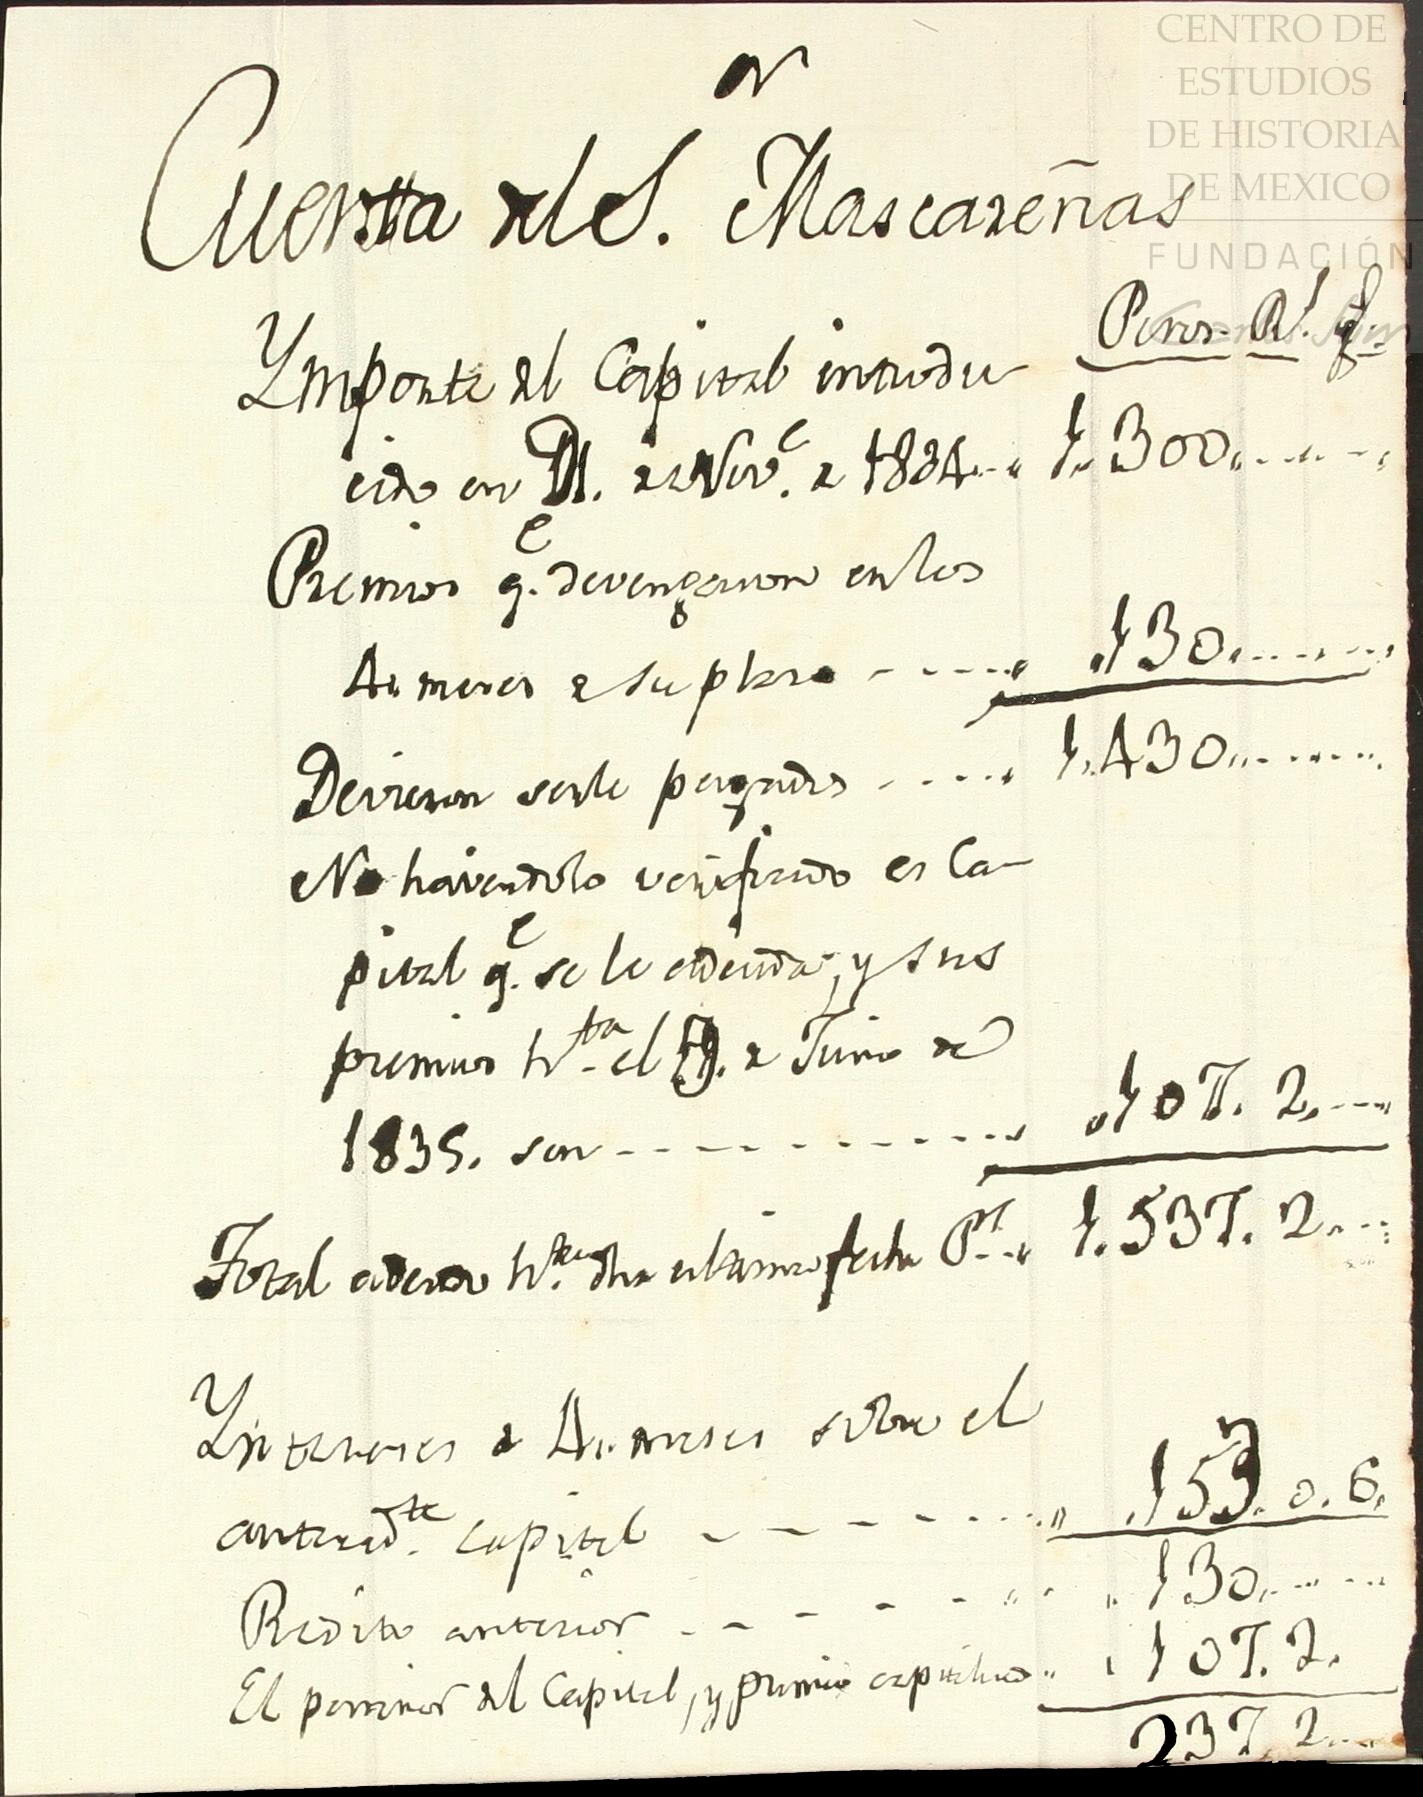 CENTRO DE
ESTUDIOS
DE HISTORIA
DE MEXICO
FUNDACIÓN
Cuenta del S.or Mascareñas
Pesos. Rs. gs.
Ymporte del Capital introdu-
cido en 11. de Nov.e de 1834... 1.300......
Premios q.e devengaron en los
4. meses de su plazo ...... 130......
Devieron serle pagados ..... 1.430......
No haviendolo verificado es Ca-
pital q.e se le adeuda, y sus
premios h.ta el 9. de Junio de
1835. son .......... 107. 2....
Total adeudo h.ta dha ultima fecha P.s 1.537. 2....
Yntereses de 4. meses sobre el
anterid.te capital ....... 153. 0. 6.
Redito anterior ...... 130......
El porrino del Capital, y premio capitalizado .. 107. 2.
237. 2....